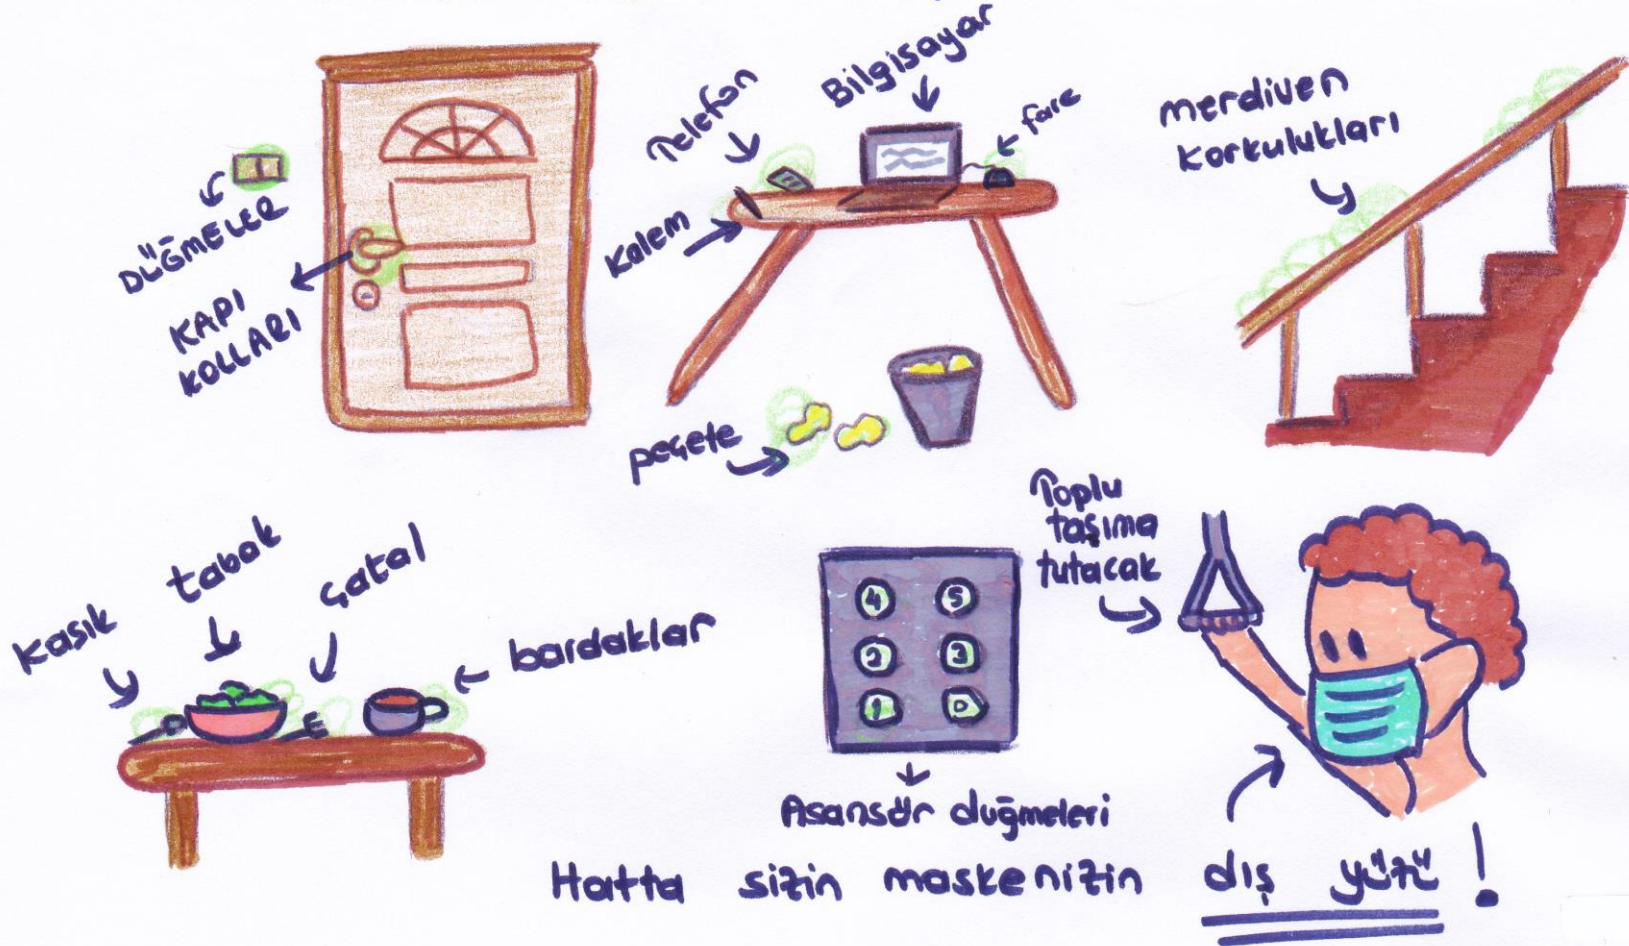 DÜĞMELER
KAPI
KOLLARI
Telefon
Bilgisayar
fare
Kalem
peçete
merdiven
korkulukları
kasık
tabak
çatal
bardaklar
4 5
2 3
1 0
Asansör duğmeleri
Toplu
taşıma
tutacak
Hatta sizin maskenizin dış yüzü!